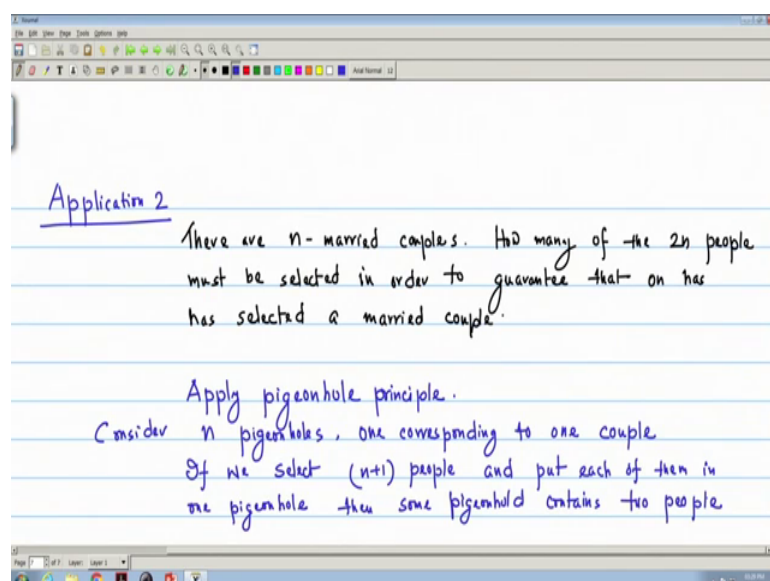 Journal
File Edit View Page Tools Options Help
Arial Normal 12
Application 2
There are n-married couples. How many of the 2n people
must be selected in order to guarantee that on has
has selected a married couple.
Apply pigeonhole principle.
Consider n pigeonholes, one corresponding to one couple
If we select (n+1) people and put each of them in
one pigeonhole then some pigeonhold contains two people
Page 7 of 7 Layer: Layer 1